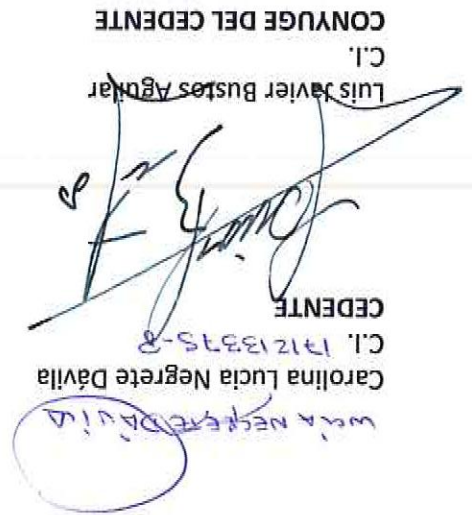 LUCÍA NEGRETE DÁVILA
Carolina Lucia Negrete Dávila
C.I. 171213375-8
CEDENTE
Luis Javier Bustos Aguilar
C.I.
CONYUGE DEL CEDENTE